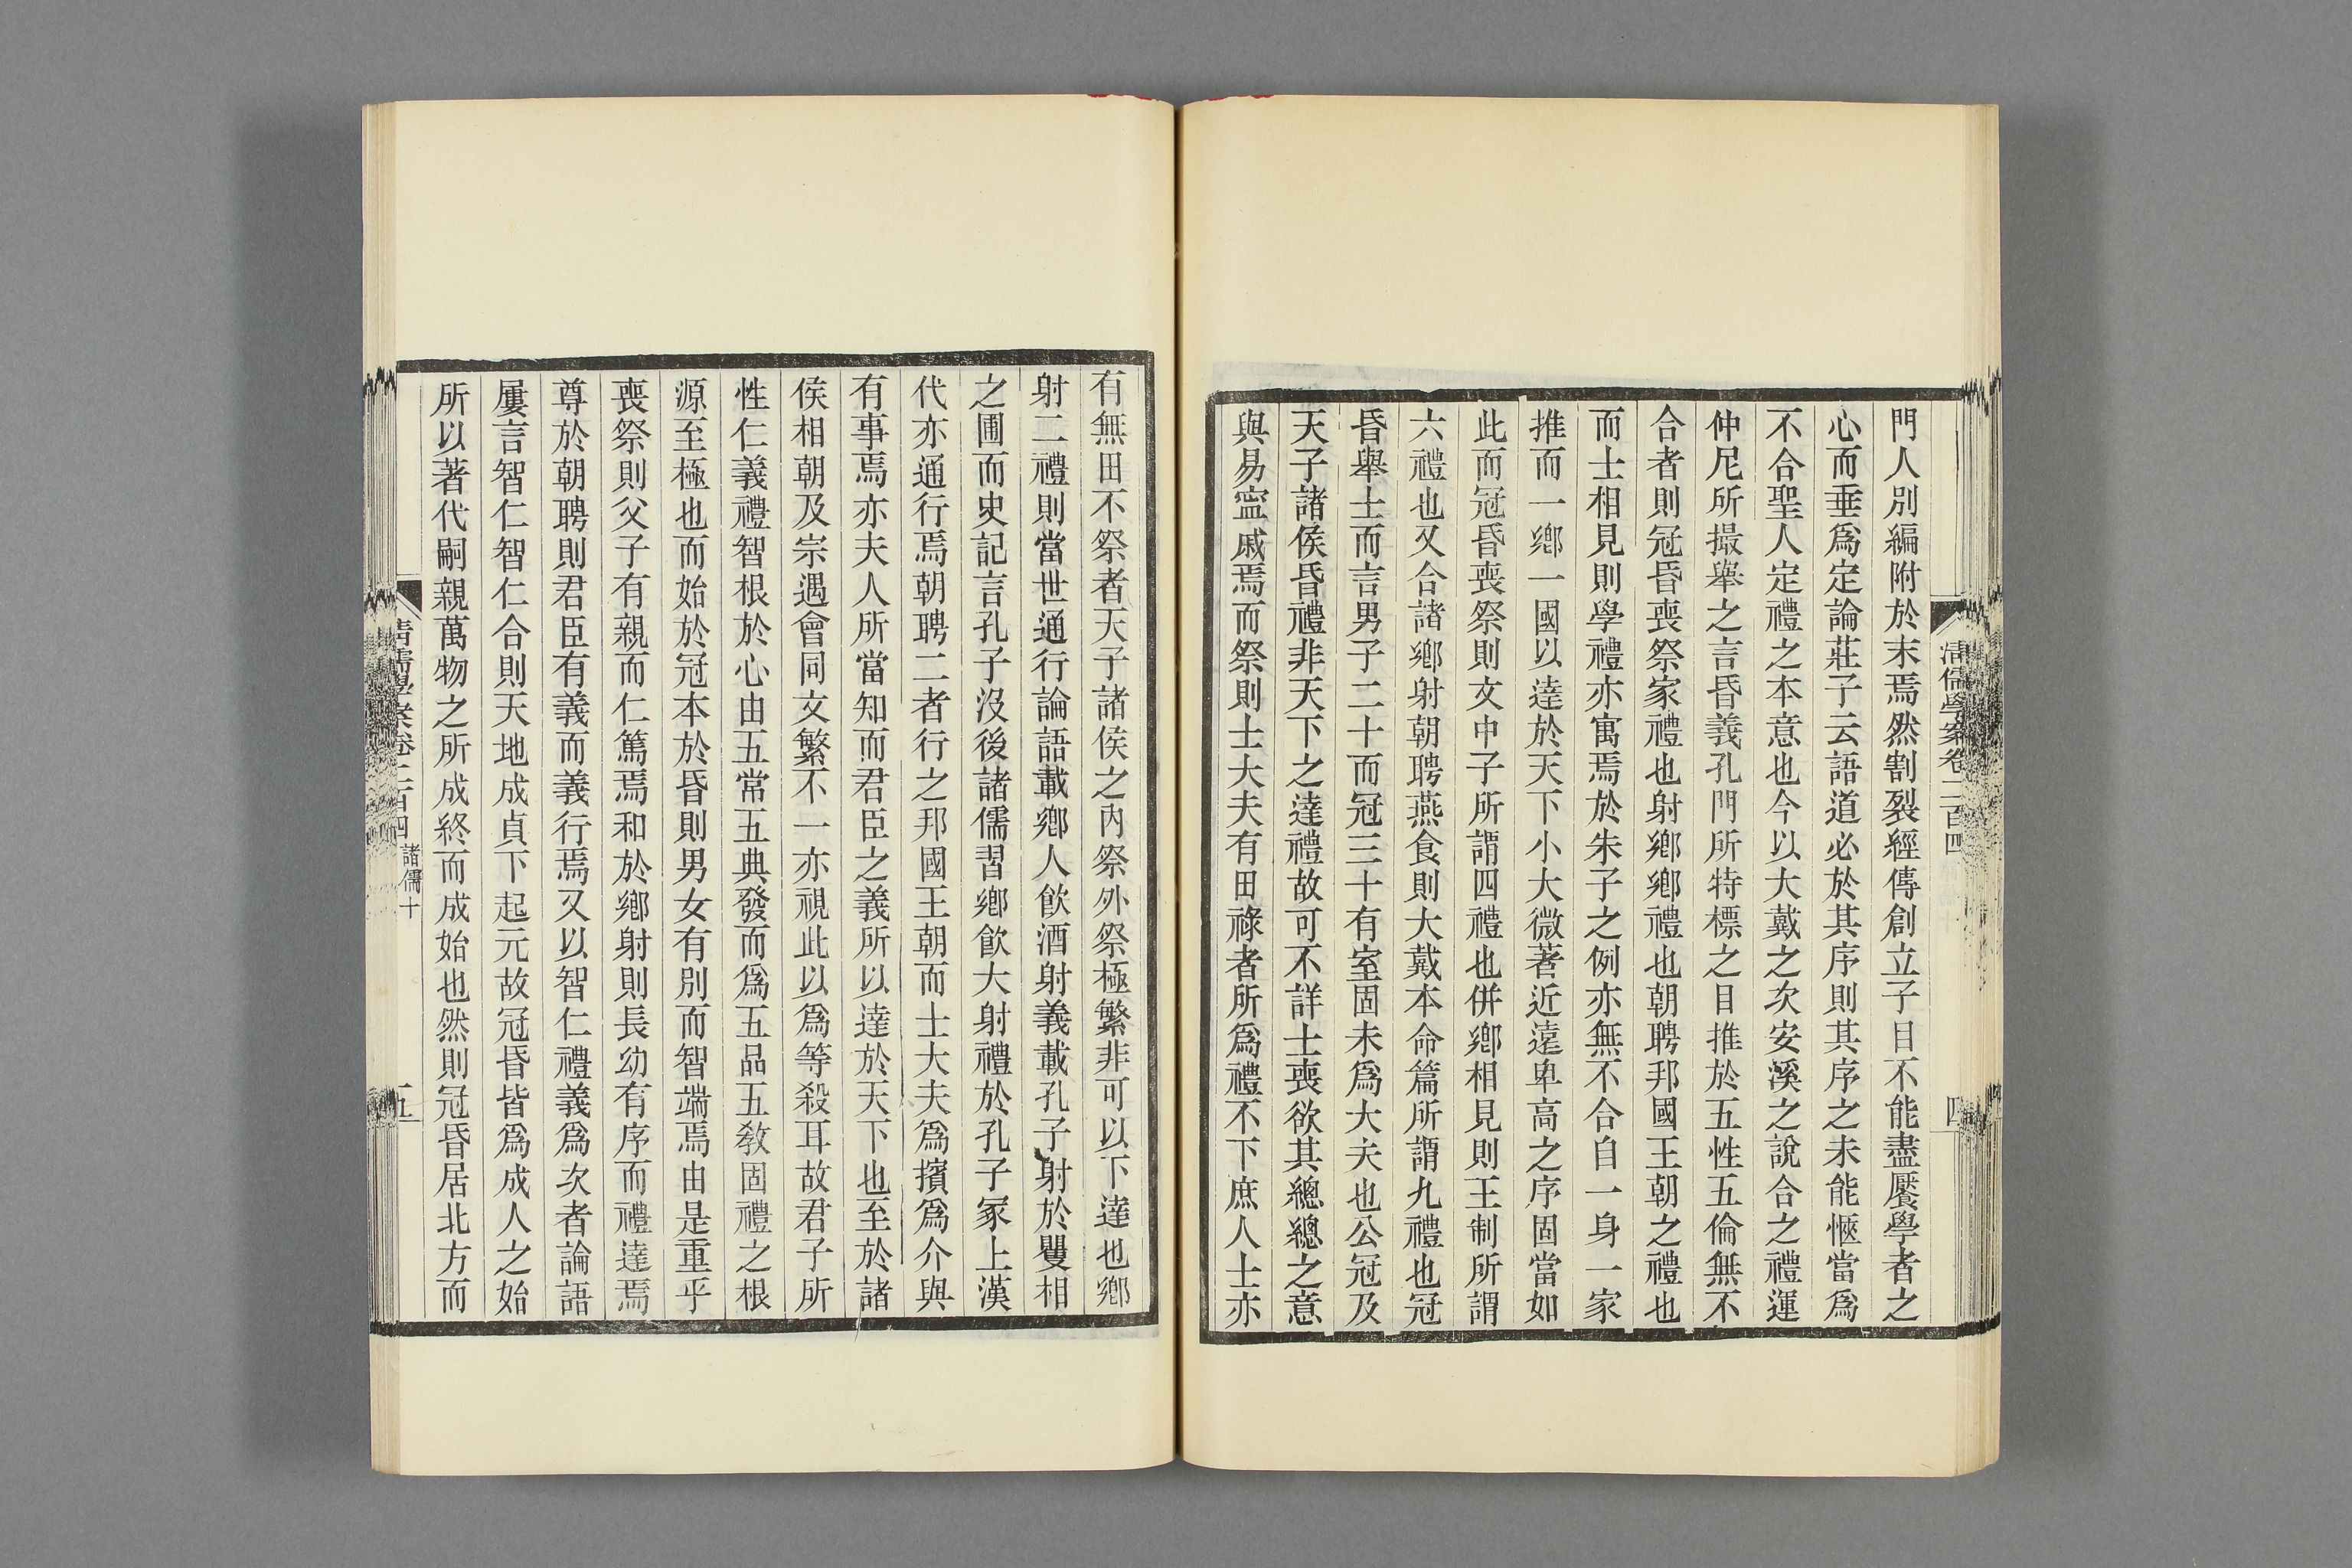 清儒學案卷二百四
四
門人別編附於末焉然割裂經傳創立子目不能盡饜學者之
心而垂爲定論莊子云語道必於其序則其序之未能愜當爲
不合聖人定禮之本意也今以大戴之次安溪之說合之禮運
仲尼所撮舉之言昏義孔門所特標之目推於五性五倫無不
合者則冠昏喪祭家禮也射鄉鄉禮也朝聘邦國王朝之禮也
而士相見則學禮亦寓焉於朱子之例亦無不合自一身一家
推而一鄉一國以達於天下小大微著近遠卑高之序固當如
此而冠昏喪祭則文中子所謂四禮也併鄉相見則王制所謂
六禮也又合諸鄉射朝聘燕食則大戴本命篇所謂九禮也冠
昏舉士而言男子二十而冠三十有室固未爲大夫也公冠及
天子諸侯昏禮非天下之達禮故可不詳士喪欲其總總之意
與易寍戚焉而祭則士大夫有田祿者所爲禮不下庶人士亦
有無田不祭者天子諸侯之內祭外祭極繁非可以下達也鄉
射二禮則當世通行論語載鄉人飮酒射義載孔子射於矍相
之圃而史記言孔子沒後諸儒習鄉飮大射禮於孔子冢上漢
代亦通行焉朝聘二者行之邦國王朝而士大夫爲擯爲介與
有事焉亦夫人所當知而君臣之義所以達於天下也至於諸
侯相朝及宗遇會同文繁不一亦視此以爲等殺耳故君子所
性仁義禮智根於心由五常五典發而爲五品五敎固禮之根
源至極也而始於冠本於昏則男女有別而智端焉由是重乎
喪祭則父子有親而仁篤焉和於鄉射則長幼有序而禮達焉
尊於朝聘則君臣有義而義行焉又以智仁禮義爲次者論語
屢言智仁智仁合則天地成貞下起元故冠昏皆爲成人之始
所以著代嗣親萬物之所成終而成始也然則冠昏居北方而
清儒學案卷二百四 諸儒十
五